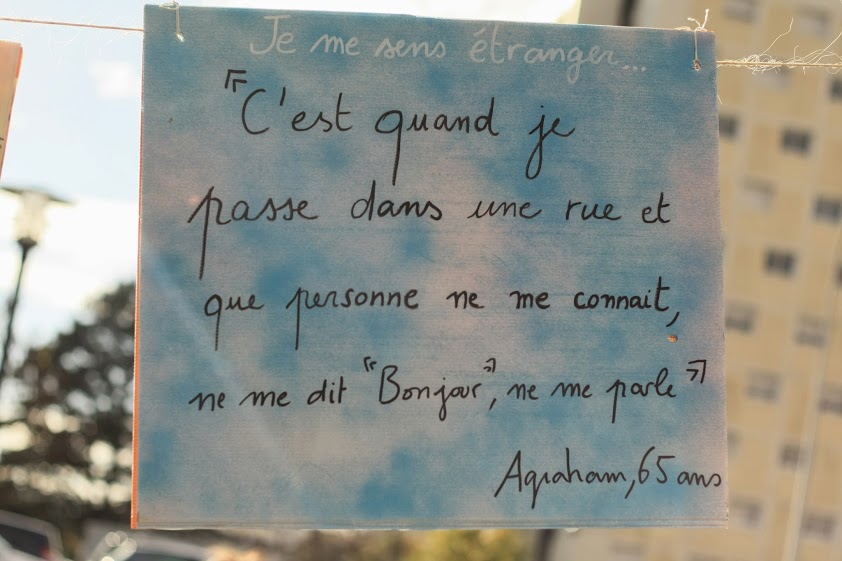 Je me sens étranger...
"C'est quand je
passe dans une rue et
que personne ne me connait,
ne me dit "Bonjour", ne me parle"
Agraham, 65 ans